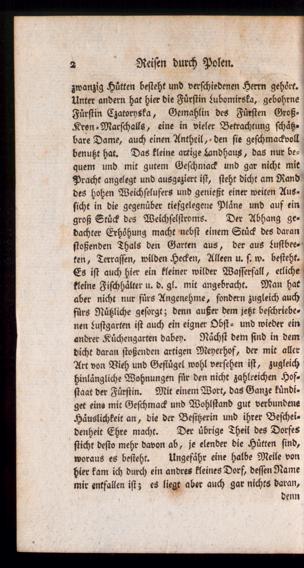 2 Reisen durch Polen.
zwanzig Hütten besteht und verschiedenen Herrn gehört.
Unter andern hat hier die Fürstin Lubomirska, gebohrne
Fürstin Czatoryska, Gemahlin des Fürsten Groß-
Kron-Marschalls, eine in vieler Betrachtung schätz-
bare Dame, auch einen Antheil, den sie geschmackvoll
benutzt hat. Das kleine artige Landhaus, das nur be-
quem und mit gutem Geschmack und gar nicht mit
Pracht angelegt und ausgeziert ist, steht dicht am Rand
des hohen Weichselufers und genießt einer weiten Aus-
sicht in die gegenüber tiefgelegene Pläne und auf ein
groß Stück des Weichselstroms. Der Abhang ge-
dachter Erhöhung macht nebst einem Stück des daran
stoßenden Thals den Garten aus, der aus Lustbee-
ten, Terrassen, wilden Hecken, Alleen u. s. w. besteht.
Es ist auch hier ein kleiner wilder Wasserfall, etliche
kleine Fischhälter u. d. gl. mit angebracht. Man hat
aber nicht nur fürs Angenehme, sondern zugleich auch
fürs Nützliche gesorgt; denn außer dem jetzt beschriebe-
nen Lustgarten ist auch ein eigner Obst- und wieder ein
andrer Küchengarten dabey. Nächst dem sind in dem
dicht daran stoßenden artigen Meyerhof, der mit aller
Art von Vieh und Geflügel wohl versehen ist, zugleich
hinlängliche Wohnungen für den nicht zahlreichen Hof-
staat der Fürstin. Mit einem Wort, das Ganze kündi-
get eine mit Geschmack und Wohlstand gut verbundene
Häuslichkeit an, die der Besitzerin und ihrer Beschei-
denheit Ehre macht. Der übrige Theil des Dorfes
sticht desto mehr davon ab, je elender die Hütten sind,
woraus es besteht. Ungefähr eine halbe Meile von
hier kam ich durch ein andres kleines Dorf, dessen Name
mir entfallen ist; es liegt aber auch gar nichts daran,
denn